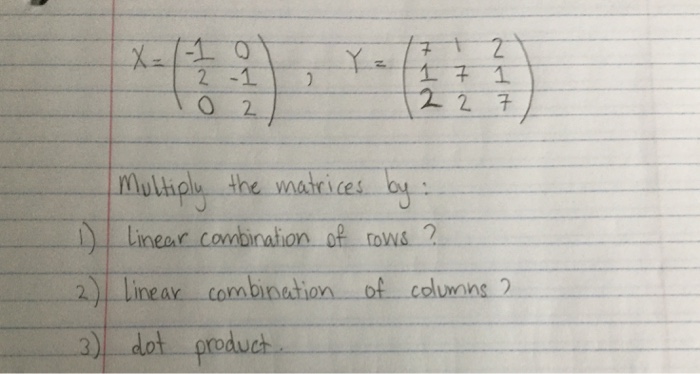 X = (-1 0 , Y = (7 1 2
2 -1 1 7 1
0 2) 2 2 7)
Multiply the matrices by :
1) linear combination of rows ?
2) linear combination of columns ?
3) dot product.